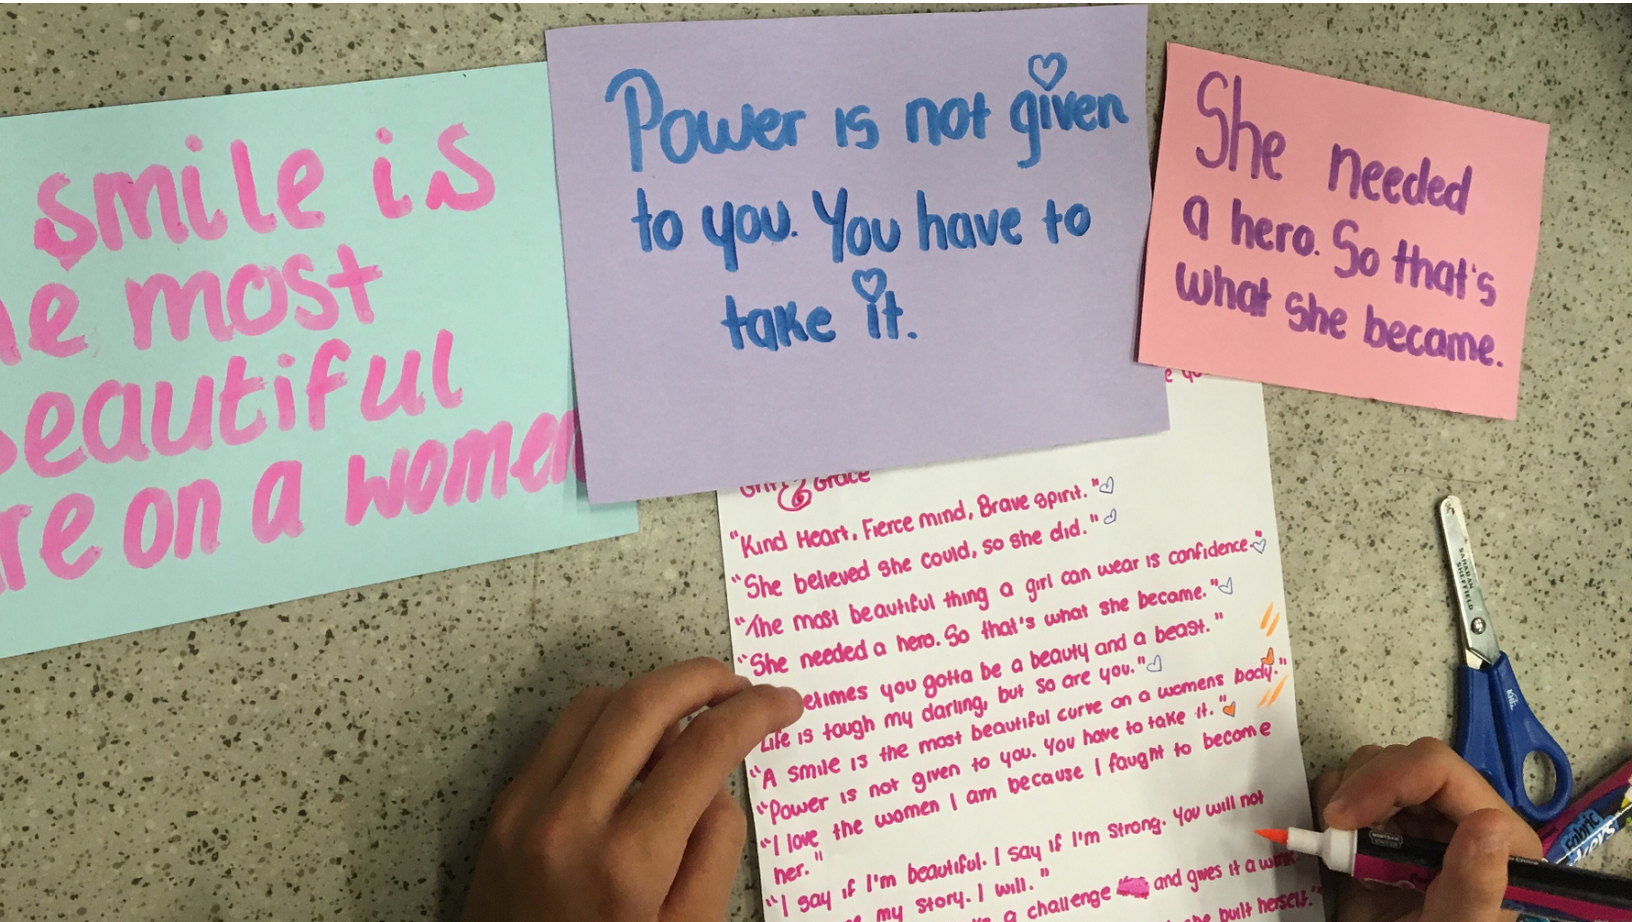 smile is
most
beautiful
on a women
Power is not given
to you. You have to
take it.
She needed
a hero. So that's
what she became.
Grit & Grace
"Kind Heart, Fierce mind, Brave spirit."
"She believed she could, so she did."
"The most beautiful thing a girl can wear is confidence."
"She needed a hero. So that's what she became."
you gotta be a beauty and a beast."
Life is tough my darling, but so are you."
"A smile is the most beautiful curve on a womens body."
"Power is not given to you. You have to take it."
"I love the women I am because I fought to become
her."
"I say if I'm beautiful. I say if I'm strong. You will not
my story. I will."
a challenge and gives it a wink
she built herself."
SHEFFIELD
Fabric